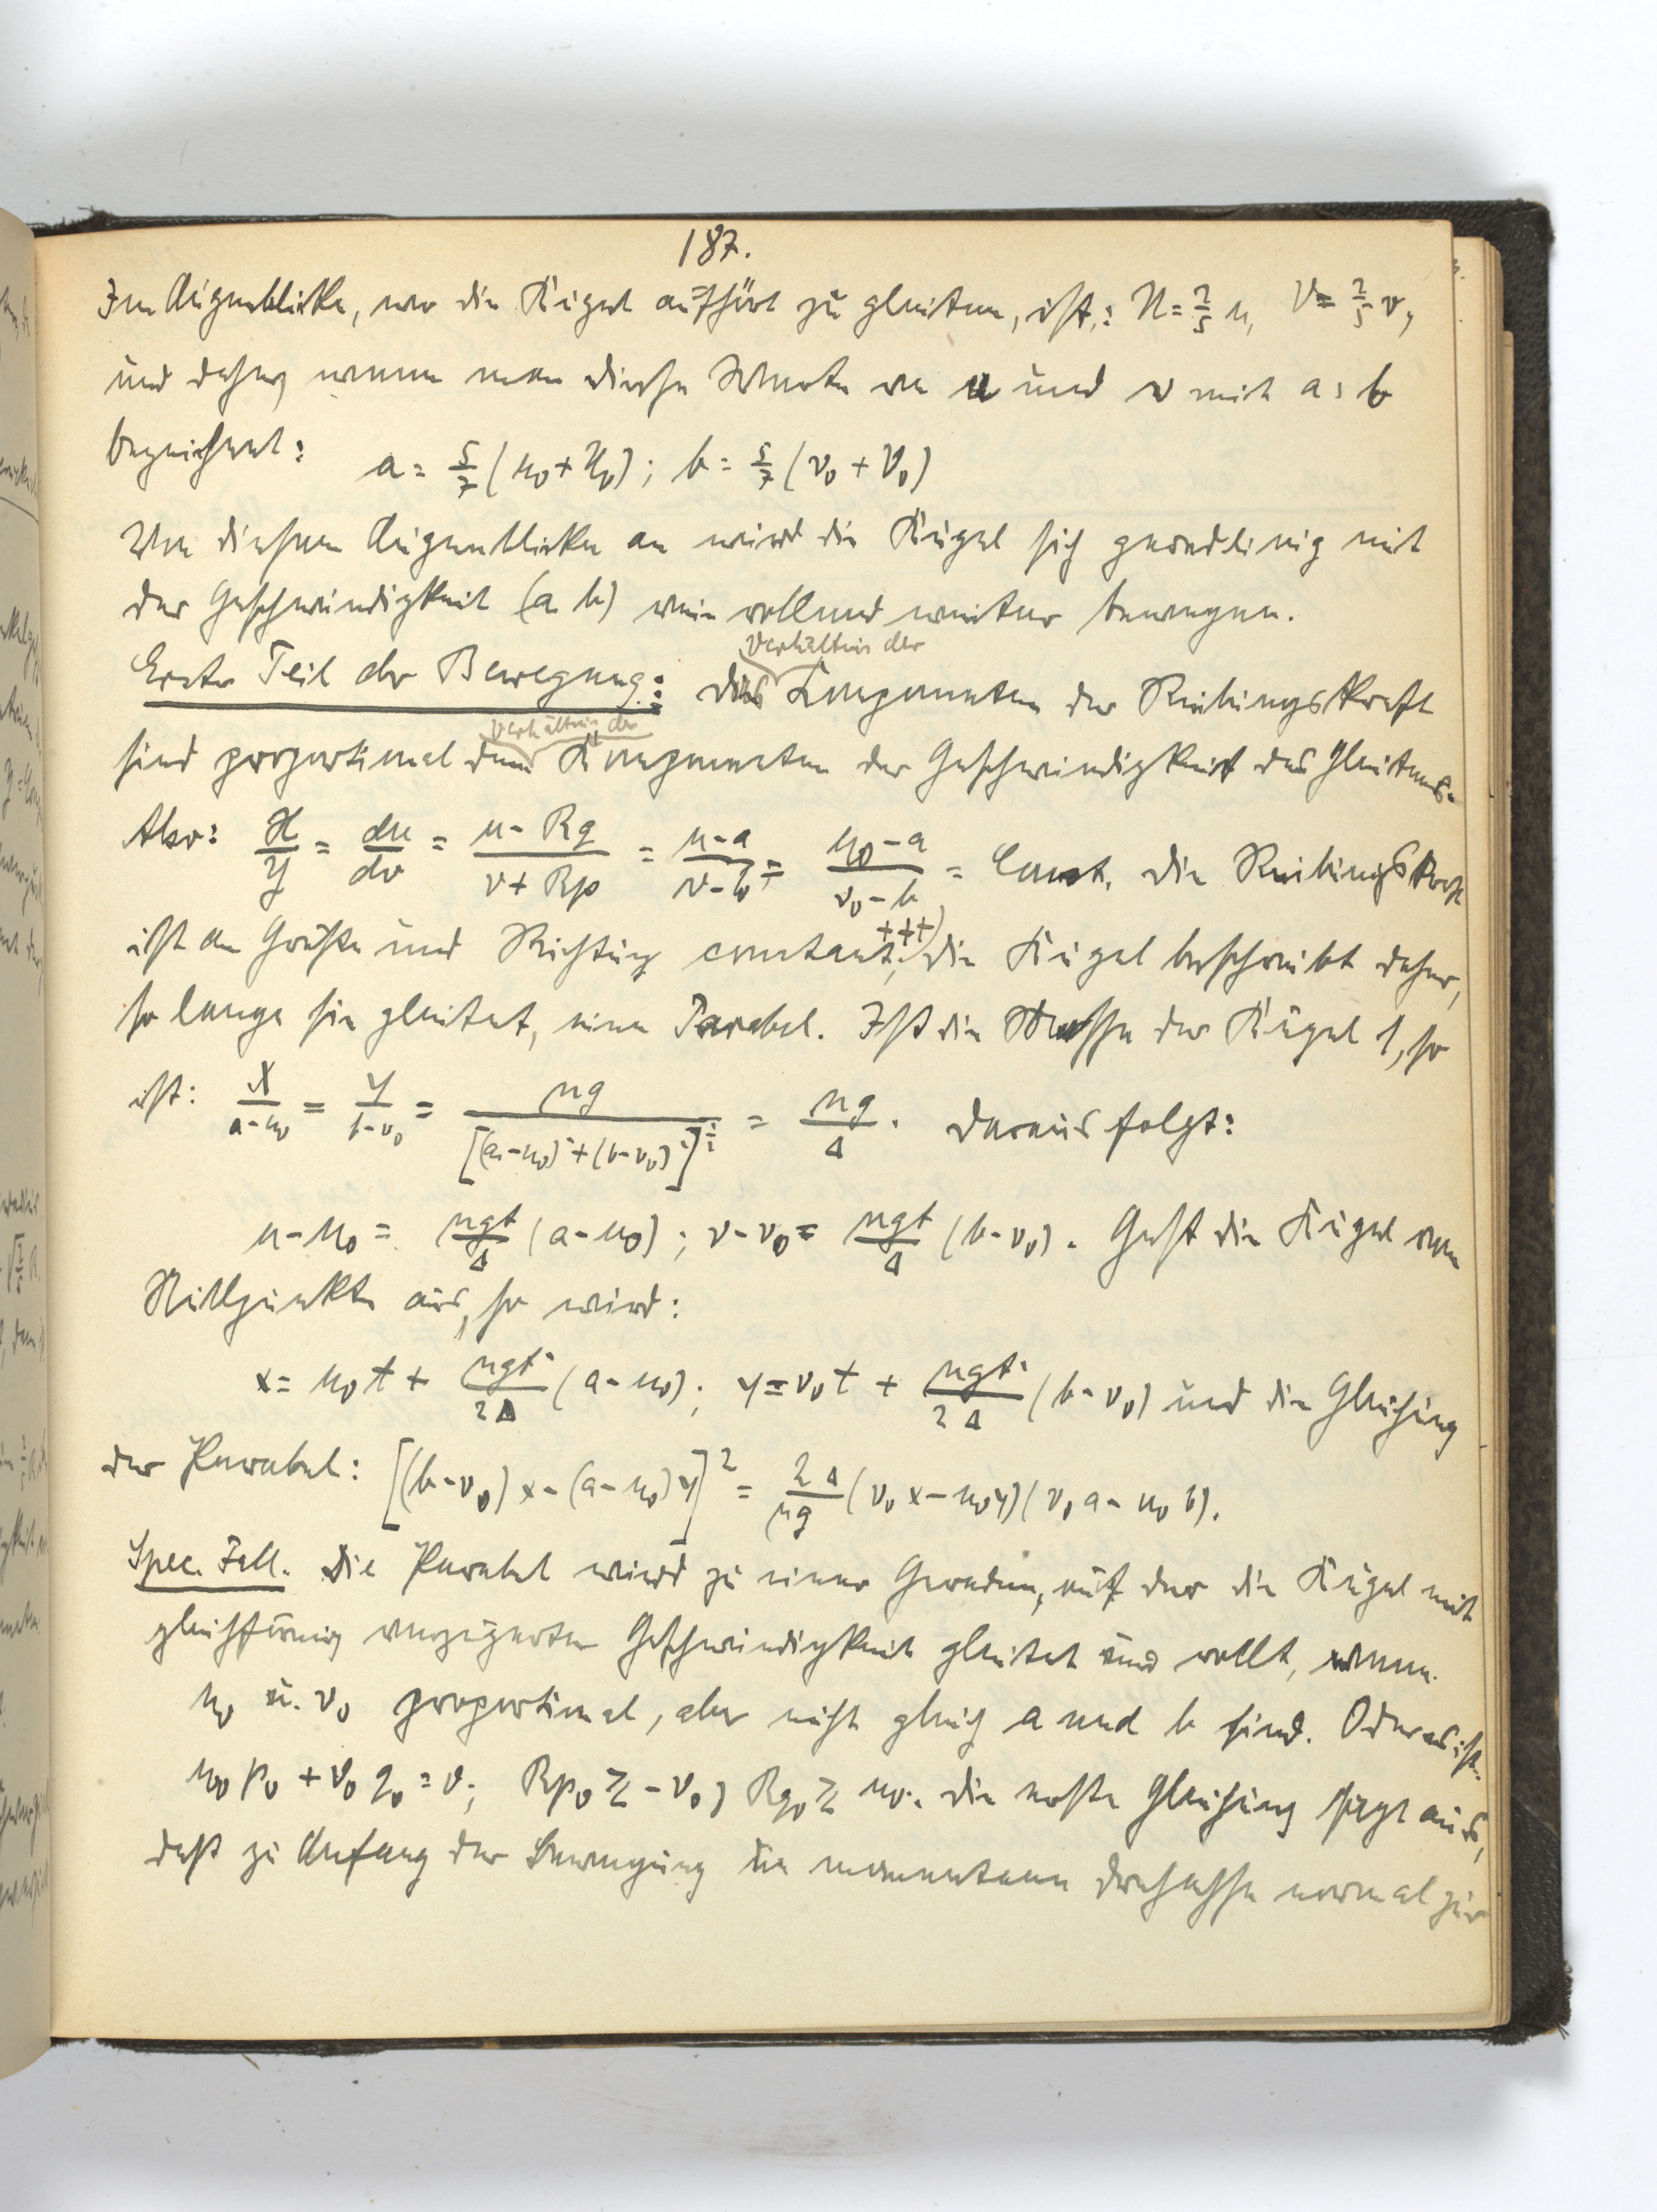 187.
Im Augenblicke, wo die Kugel aufhört zu gleiten, ist: U = 2/5 u, V = 2/5 v,
und daher, wenn man diese Werte von u und v mit a, b
bezeichnet: a = 5/7 (u₀ + U₀); b = 5/7 (v₀ + V₀)
Von diesem Augenblicke an wird die Kugel sich geradlinig mit
der Geschwindigkeit (a b) rein rollend weiter bewegen.
Verhältnis der
Erster Teil der Bewegung: das Komponenten der Reibungskraft
Verhältnis der
sind proportional dem Komponenten der Geschwindigkeit des Gleitens.
Also: X/Y = du/dv = (u - Rq)/(v + Rp) = (u - a)/(v - b) = (u₀ - a)/(v₀ - b) = Const. Die Reibungskraft
ist an Größe und Richtung constant; +++) die Kugel beschreibt daher,
so lange sie gleitet, eine Parabel. Ist die Masse der Kugel 1, so
ist: X/(a - u₀) = Y/(b - v₀) = μg/[(a - u₀)² + (b - v₀)²]^½ = μg/Δ. Daraus folgt:
u - u₀ = μgt/Δ (a - u₀); v - v₀ = μgt/Δ (b - v₀). Geht die Kugel vom
Nullpunkte aus, so wird:
x = u₀t + μgt²/2Δ (a - u₀); y = v₀t + μgt²/2Δ (b - v₀) und die Gleichung
der Parabel: [(b - v₀)x - (a - u₀)y]² = 2Δ/μg (v₀x - u₀y)(v₀a - u₀b).
Spec. Fall. Die Parabel wird zu einer Geraden, auf der die Kugel mit
gleichförmig verzögerter Geschwindigkeit gleitet und rollt, wenn
u₀ u. v₀ proportional, aber nicht gleich a und b sind. Oder es ist:
u₀p₀ + v₀q₀ = 0; Rp₀ ≷ - v₀; Rq₀ ≷ u₀. Die erste Gleichung sagt aus,
daß zu Anfang der Bewegung die momentane Drehachse normal zur